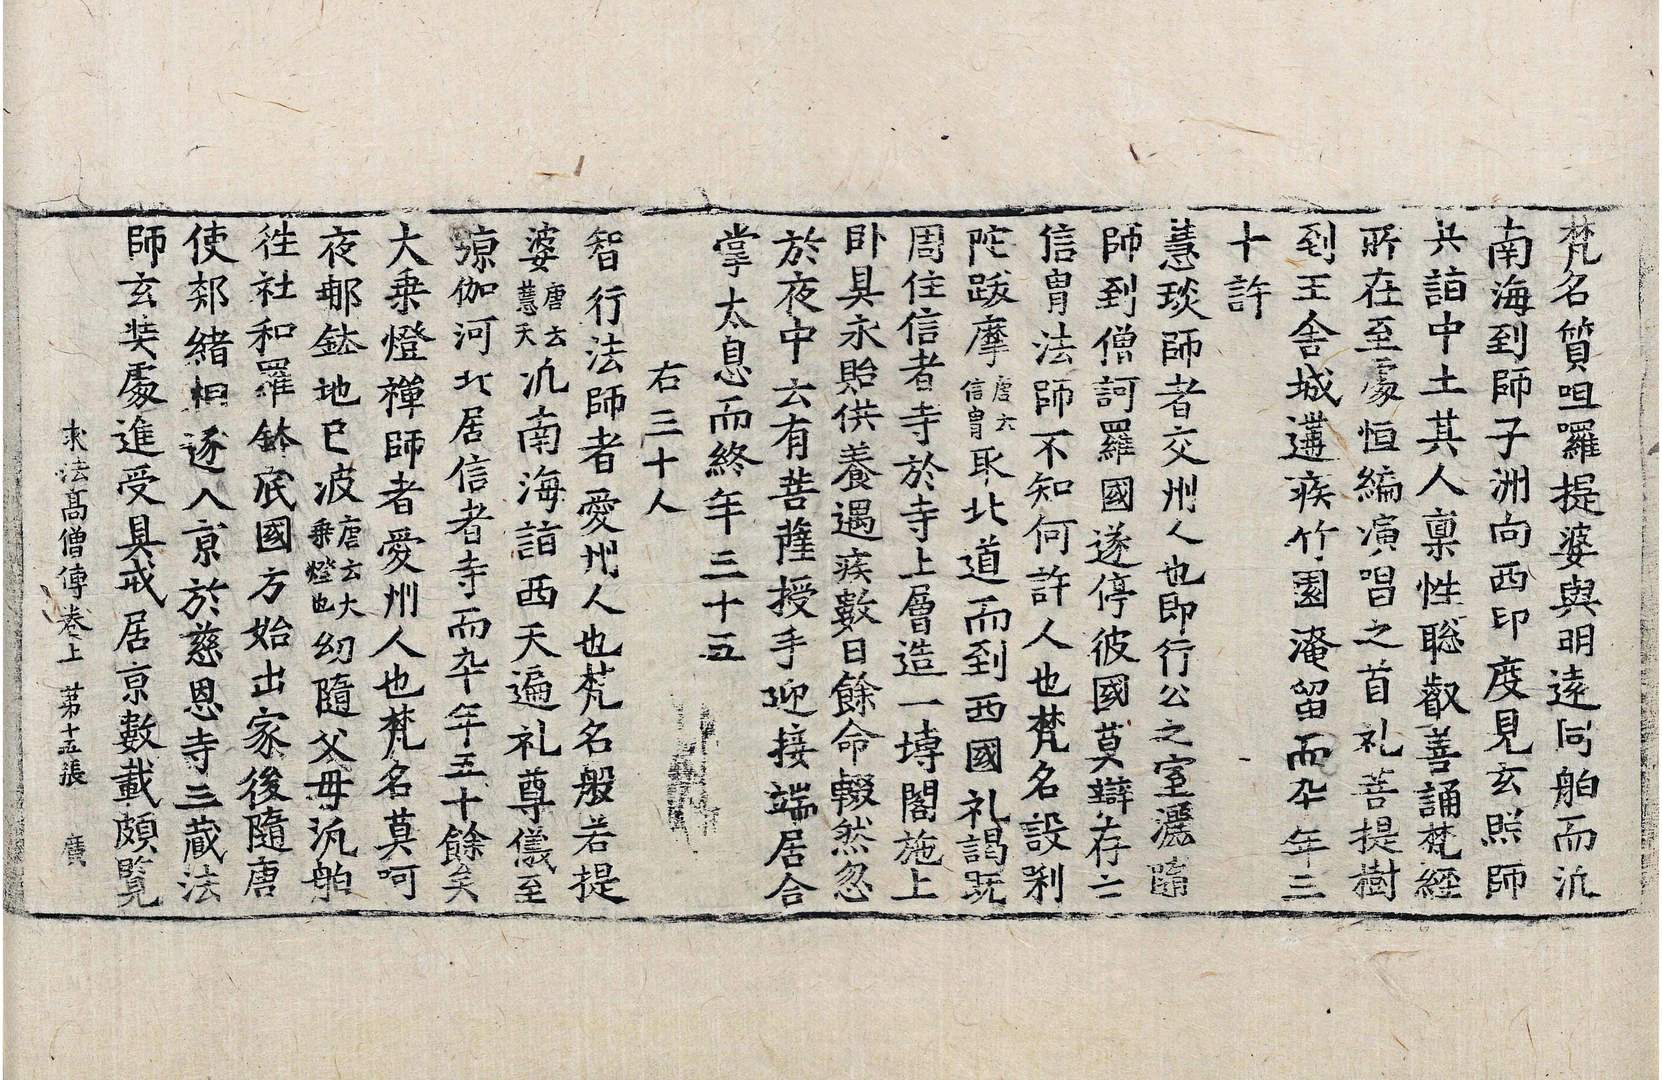 梵名質呾囉提婆與明遠同舶而汎
南海到師子洲向西印度見玄照師
共詣中土其人稟性聡叡善誦梵經
所在至處恒編演唱之首礼菩提樹
到王舍城遘疾竹園淹留而卒年三
十許
慧琰師者交州人也即行公之室灑隨
師到僧訶羅國遂停彼國莫辯存亡
信胄法師不知何許人也梵名設剌
陀跋摩唐云信胄取北道而到西國礼謁既
周住信者寺於寺上層造一塼閣施上
卧具永貽供養遇疾數日餘命輟然忽
於夜中云有菩薩授手迎接端居合
掌太息而終年三十五
右三十人
智行法師者愛州人也梵名般若提
婆唐云慧天汎南海詣西天遍礼尊儀至
凉伽河北居信者寺而卒年五十餘矣
大乗燈禪師者愛州人也梵名莫呵
夜那鉢地已波唐云大乗燈也幼隨父毋汎舶
徃社和羅鉢底國方始出家後隨唐
使郯緒相逐入京於慈恩寺三藏法
師玄奘處進受具戒居京數載頗覧
求法高僧傳卷上 第十五張 廣